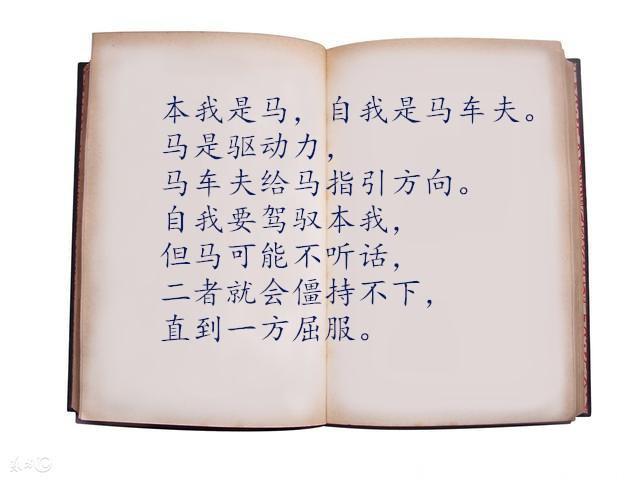 本我是马，自我是马车夫。
马是驱动力，
马车夫给马指引方向。
自我要驾驭本我，
但马可能不听话，
二者就会僵持不下，
直到一方屈服。